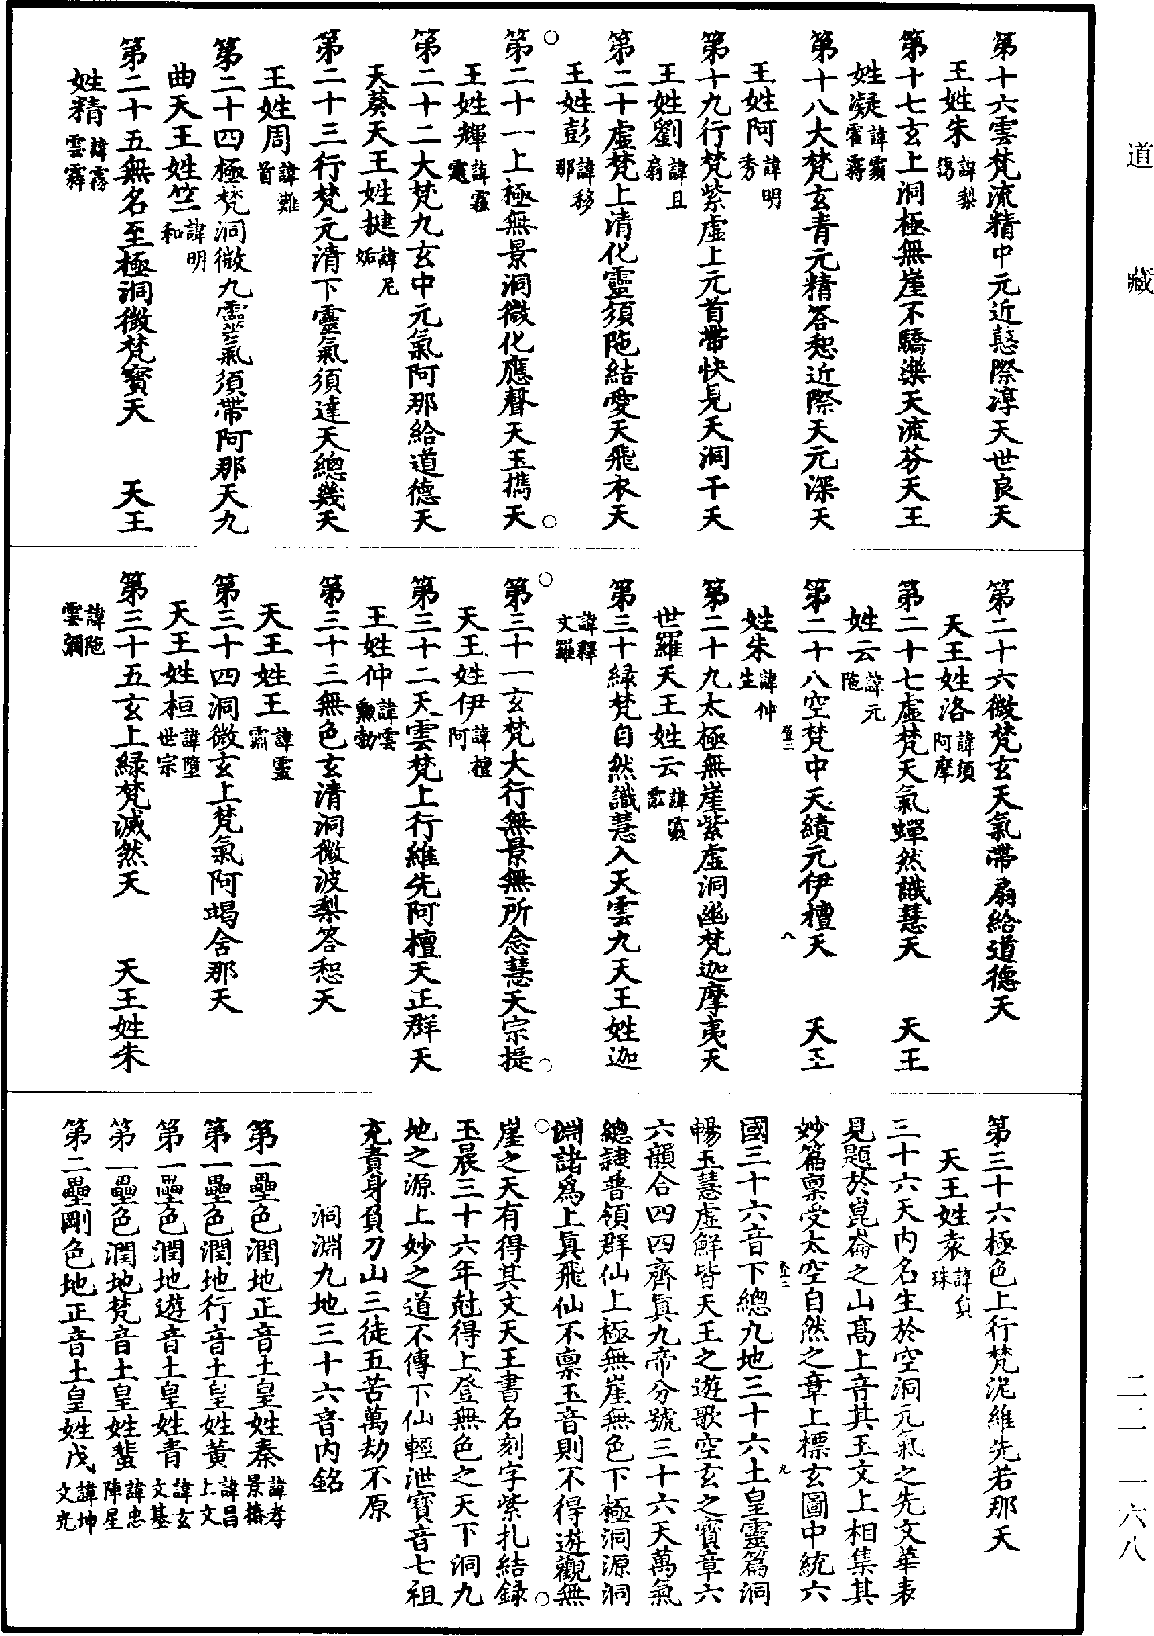 道藏
第十六雲梵流精中元近慧際淳天世良天
王姓朱諱梨
第十七玄上洞極無崖不驕樂天流芬天王
姓凝諱霐霍霧
第十八大梵玄青元精答恕近際天元深天
王姓阿諱明秀
第十九行梵紫虛上元首帶快見天洞干天
王姓劉諱且扇
第二十虛梵上清化靈須陁結愛天飛衣天
王姓彭諱移那
第二十一上極無景洞微化應聲天玉攜天
王姓輝諱霍
第二十二大梵九玄中元氣阿那給道德天
天葵天王姓捷諱尼姤
第二十三行梵元清下靈氣須達天總幾天
王姓周諱難首
第二十四極梵洞微九靈氣須帶阿那天九
曲天王姓竺諱明和
第二十五無名至極洞微梵寶天 天王
姓精諱霧雲霹
第二十六微梵玄天氣帶扇給道德天
天王姓洛諱須阿摩
第二十七虛梵天氣蟬然識慧天 天王
姓云諱元陁
第二十八空梵中天績元伊檀天 天王
姓朱諱仲生
第二十九太極無崖紫虛洞幽梵迦摩夷天
世羅天王姓云諱霐
第三十綠梵自然識慧入天雲九天王姓迦
諱釋文羅
第三十一玄梵大行無景無所念慧天宗提
天王姓伊諱檀阿
第三十二天雲梵上行維先阿檀天正群天
王姓仲諱雲勳勃
第三十三無色玄清洞微波梨答恕天
天王姓王諱靈霸
第三十四洞微玄上梵氣阿竭舍那天
天王姓桓諱墮世宗
第三十五玄上綠梵滅然天 天王姓朱
諱陁雲彌
第三十六極色上行梵泥維先若那天
天王姓袁諱負珠
三十六天內名生於空洞元氣之先文華表
見題於崑崙之山高上音其玉文上相集其
妙篇稟受太空自然之章上標玄圖中統六
國三十六音下總九地三十六土皇靈篇洞
暢玉慧虛鮮皆天王之遊歌空玄之寶章六
六韻合四四齊真九帝分號三十六天萬氣
總隷普領群仙上極無崖無色下極洞源洞
淵諸為上真飛仙不稟玉音則不得遊觀無
崖之天有得其文天王書名刻字紫扎結錄
玉晨三十六年尅得上登無色之天下洞九
地之源上妙之道不傳下仙輕泄寶音七祖
充責身負刀山三徒五苦萬劫不原
洞淵九地三十六音內銘
第一壘色潤地正音土皇姓秦諱孝景椿
第一壘色潤地行音土皇姓黃諱昌上文
第一壘色潤地遊音土皇姓青諱玄文基
第一壘色潤地梵音土皇姓蜚諱忠陣星
第二壘剛色地正音土皇姓戊諱坤文光
二二—一六八